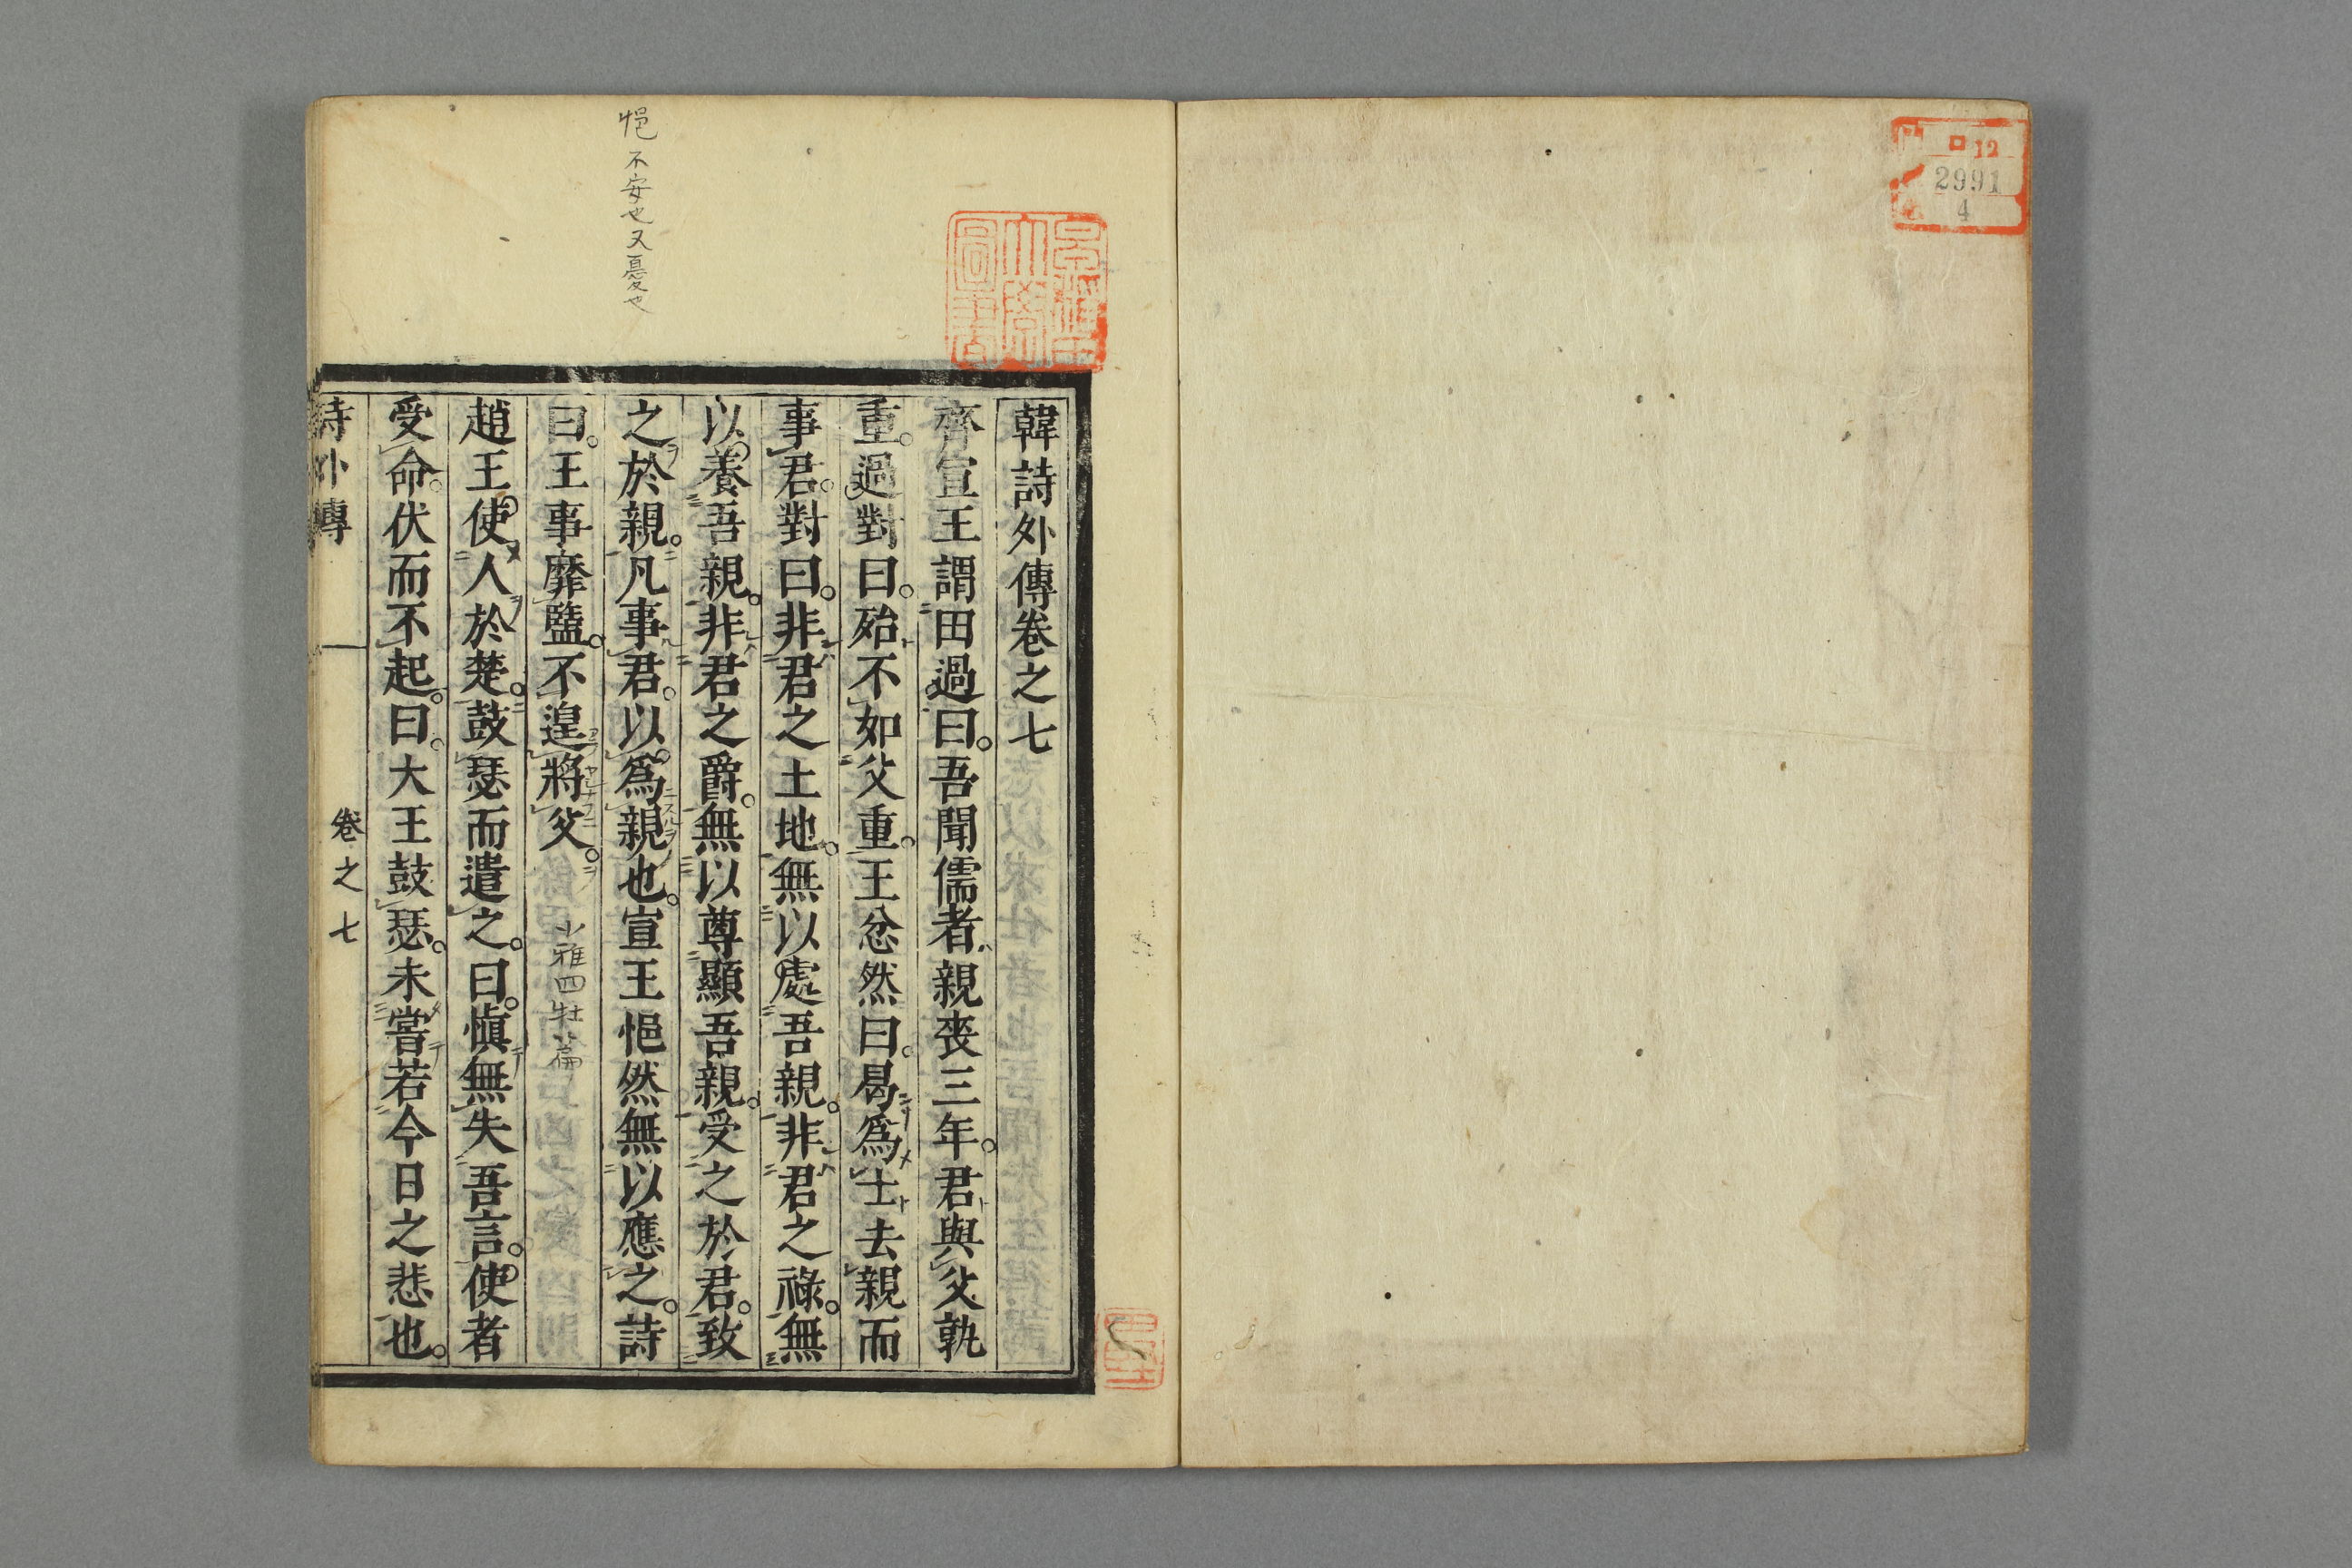 ロ12
2991
4
韓詩外傳卷之七
齊宣王謂田過曰。吾聞儒者親喪三年。君與父孰
重。過對曰。殆不如父重。王忿然曰。曷爲士去親而
事君。對曰。非君之土地。無以處吾親。非君之祿。無
以養吾親。非君之爵。無以尊顯吾親。受之於君。致
之於親。凡事君。以爲親也。宣王悒然無以應之。詩
曰。王事靡盬。不遑將父。
小雅四牡篇
悒 不安也又憂也
趙王使人於楚。鼓瑟而遣之。曰。愼無失吾言。使者
受命。伏而不起。曰。大王鼓瑟。未嘗若今日之悲也。
詩外傳 卷之七